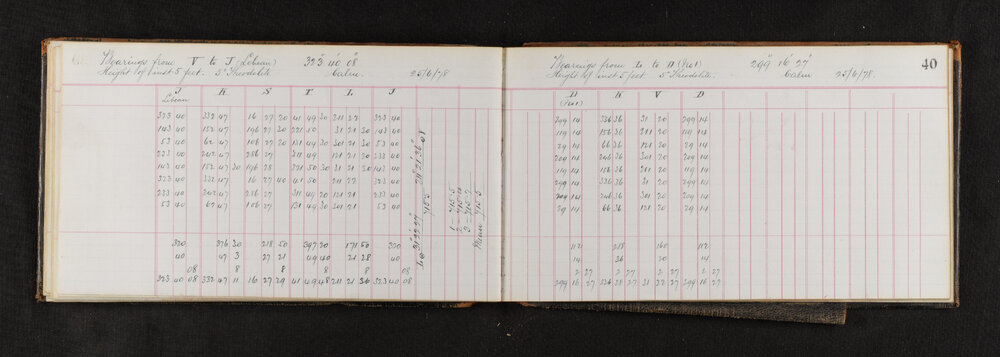 Bearings from V to J (Lebian) 323° 40' 08"
Height of inst. 5 feet. 5" Theodolite. Calm. 25/6/78
J K S T L J
Lebian
323 40 332 47 16 27 20 41 49 30 211 22 323 40
143 40 152 47 196 27 20 221 50 31 21 30 143 40
53 40 62 47 106 27 20 131 49 30 301 21 30 53 40
233 40 242 47 286 27 311 49 121 21 20 233 40
143 40 152 47 30 196 28 221 50 30 31 21 30 143 40
323 40 332 47 16 27 40 41 50 211 22 323 40
233 40 242 47 286 27 311 49 20 121 21 233 40
53 40 62 47 106 27 131 49 30 301 21 53 40
320 376 30 218 50 397 20 171 50 320
40 47 3 27 21 49 40 21 28 40
08 8 8 8 08
323 40 08 332 47 11 16 27 29 41 49 48 211 21 36 323 40 08
1 = 715.5
2 = 715.4
3 = 715.7
Mean 715.5
Bearings from L to D (Hot) 299° 16' 27"
Height of inst 5 feet 5" Theodolite. Calm 25/6/78.
40
D K V D
(Hot)
299 14 336 36 31 20 299 14
119 14 156 36 211 20 119 14
29 14 66 36 121 20 29 14
209 14 246 36 301 20 209 14
119 14 156 36 211 20 119 14
299 14 336 36 31 20 299 14
209 14 246 36 301 20 209 14
29 14 66 36 121 20 29 14
112 288 160 112
14 36 20 14
2 27 2 27 2 27 2 27
299 16 27 336 38 27 31 22 27 299 16 27